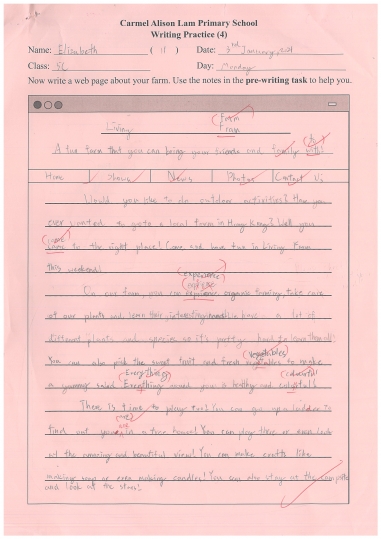 Carmel Alison Lam Primary School
Writing Practice (4)
Name: Elisabeth ( 11 ) Date: 3rd January, 201
Class: 5C Day: Monday
Now write a web page about your farm. Use the notes in the pre-writing task to help you.
Farm
Living Fram
A fun farm that you can bring your friends and family
Home News Photos Contact Us
Would you like to do outdoor activities? Have you
ever wanted to go to a local farm in Hong Kong? Well, you
come
to the right place! Come and have fun in Living Fram
this weekend!
experience
On our farm, you can organic farming, take care
of our plants and learn their We have a lot of
different plants and species so it's pretty hard to learn them all!
(vegetables)
You can also pick the sweet fruit and fresh to make
(Everything) (colourful)
a yummy salad. around you is healthy and
There is time to play too! You can go up a ladder to
find out you're in a tree house! You can play there or even look
at the amazing and beautiful view! You can make crafts like
making soap or even making candles! You can also stay at the campsite
and look at the stars!